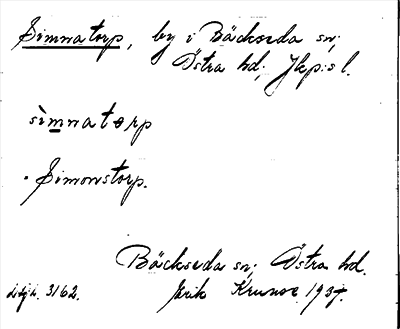 Simnatorp, by i Bäckseda sn;
Östra hd; Jkp:s l.
sìmnatɵrp
• Simonstorp.
Bäckseda sn; Östra hd.
3162. Erik 1937.